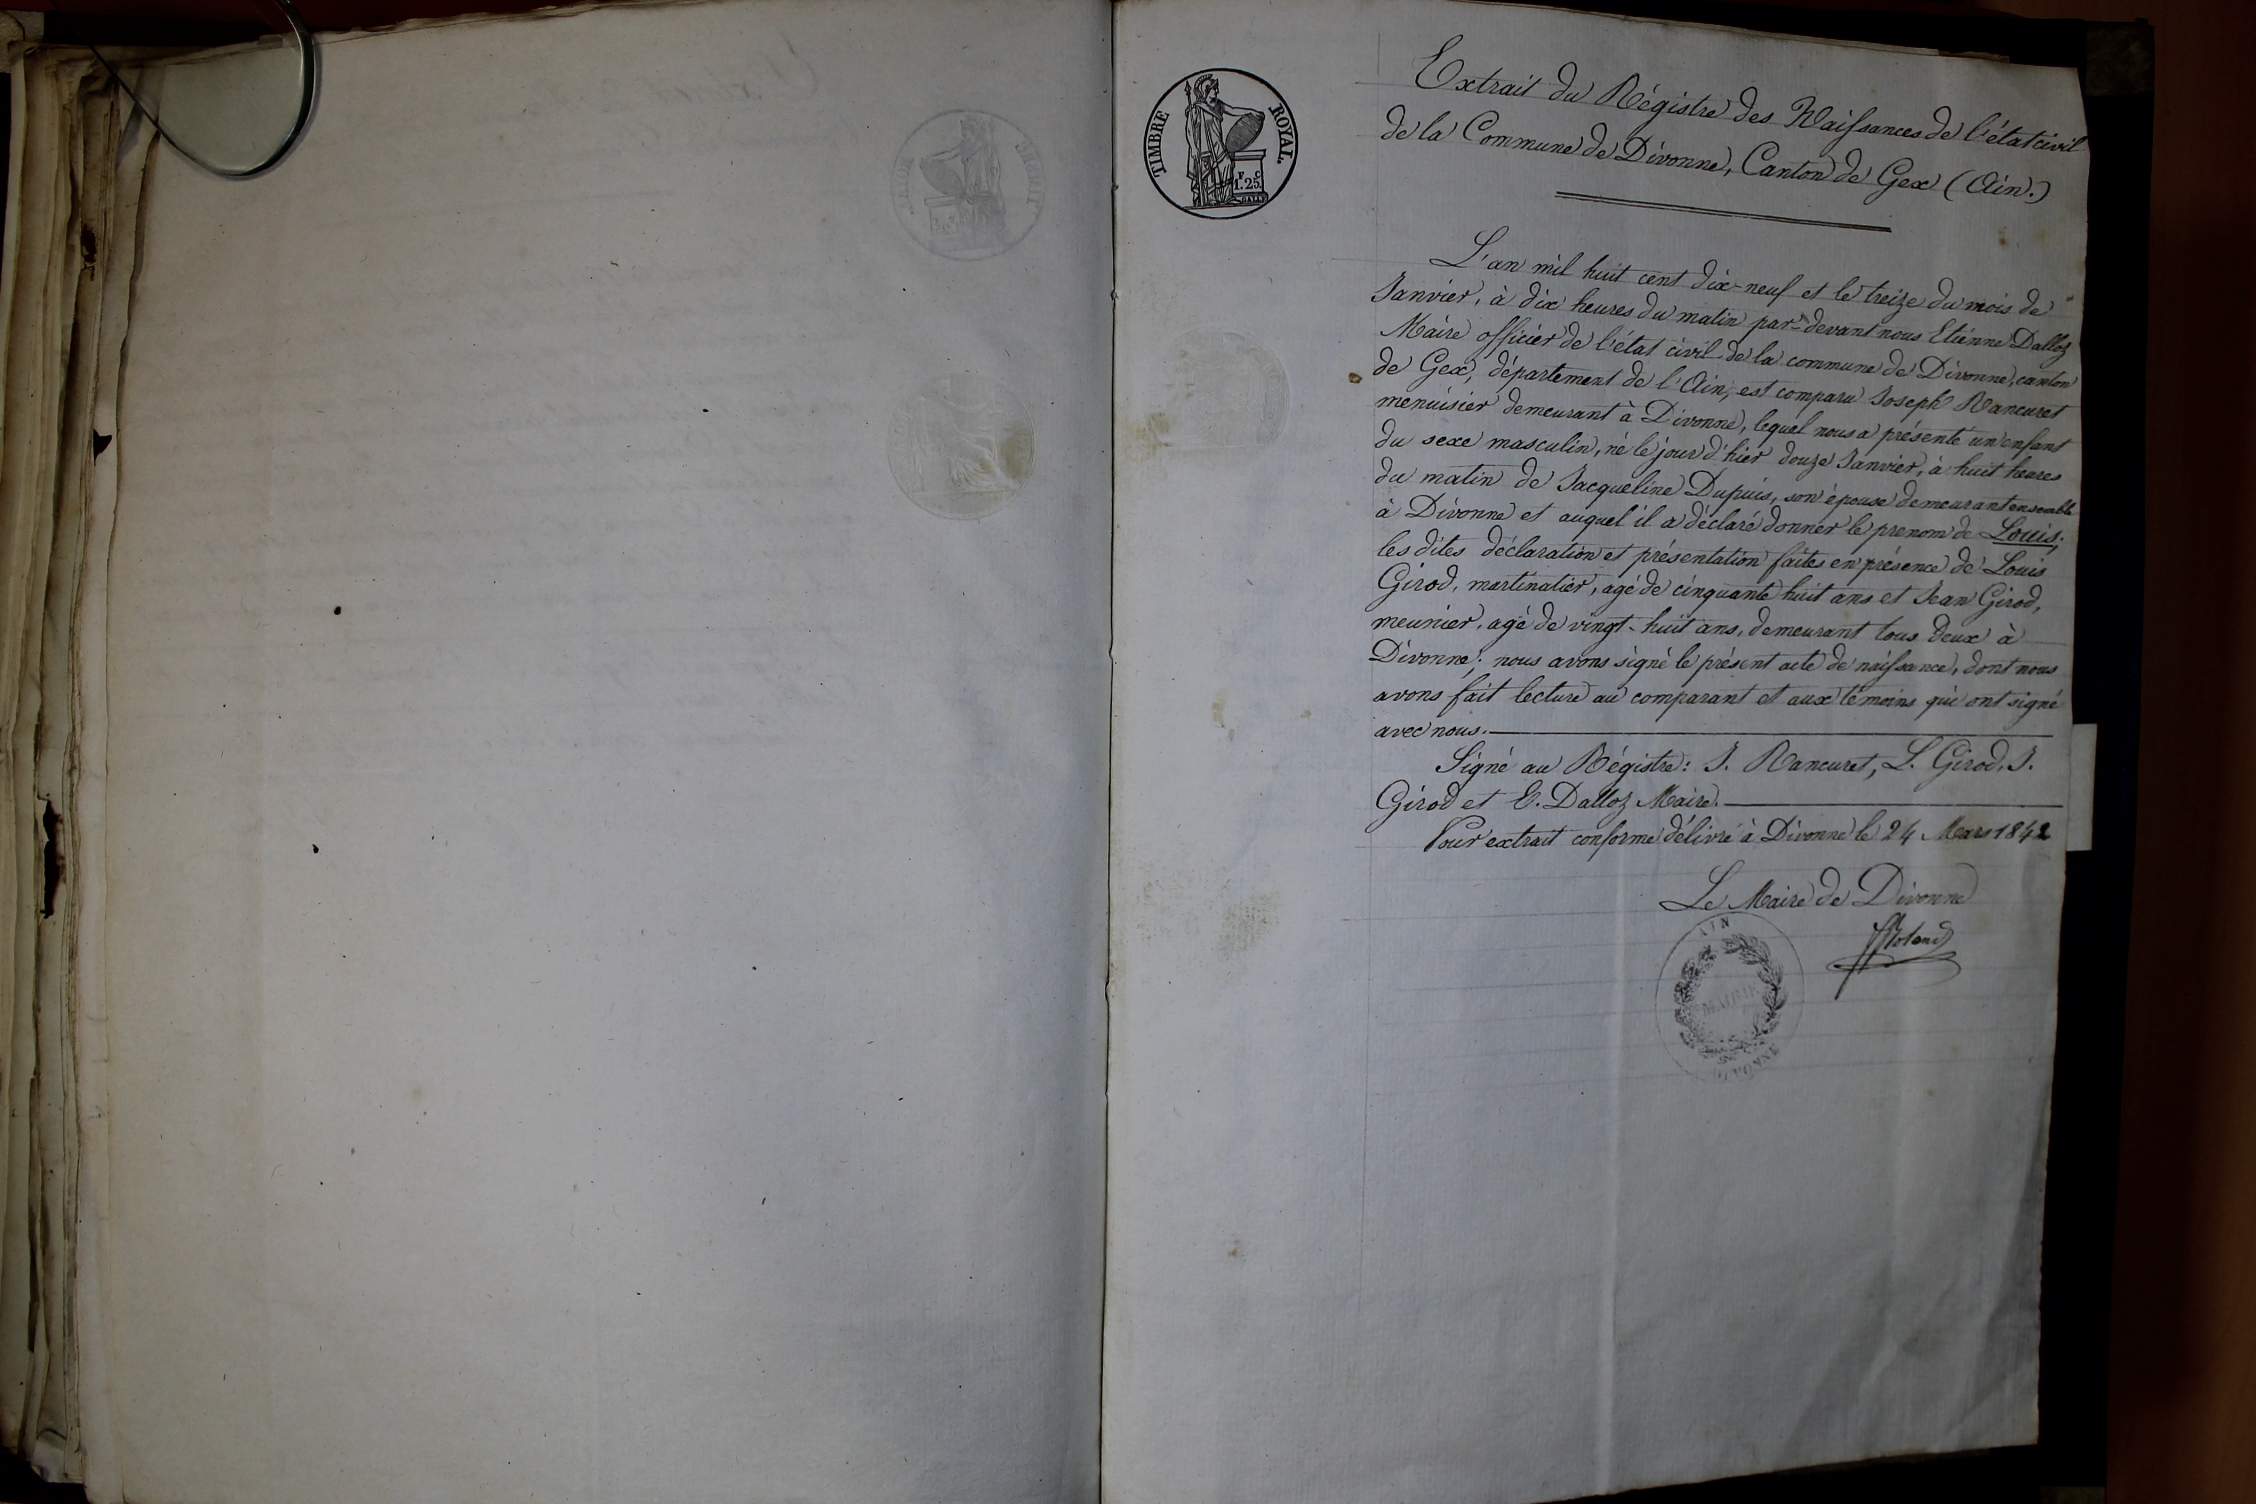 TIMBRE ROYAL.
F. C
1.25
Extrait du Régistre des Naissances de l'état civil
de la Commune de Divonne, Canton de Gex (Ain.)
L'an mil huit cent dix-neuf et le treize du mois de
Janvier, à dix heures du matin par-devant nous Etienne Dalloz
Maire officier de l'état civil de la commune de Divonne, canton
de Gex, département de l'Ain, est comparu Joseph Rancuret
menuisier demeurant à Divonne, lequel nous a présenté un enfant
du sexe masculin, né le jour d'hier douze Janvier, à huit heures
du matin de Jacqueline Dupuis, son épouse demeurant ensemble
à Divonne et auquel il a déclaré donner le prenom de Louis;
les dites déclaration et présentation faites en présence de Louis
Girod, martinatier, agé de cinquante huit ans et Jean Girod,
meunier, agé de vingt-huit ans, demeurant tous deux à
Divonne; nous avons signé le présent acte de naissance, dont nous
avons fait lecture au comparant et aux témoins qui ont signé
avec nous.
Signé au Régistre: J. Rancuret, L. Girod, J.
Girod et E. Dalloz Maire.
Pour extrait conforme délivré à Divonne le 24 Mars 1842
Le Maire de Divonne
AIN
MAIRIE
DIVONNE